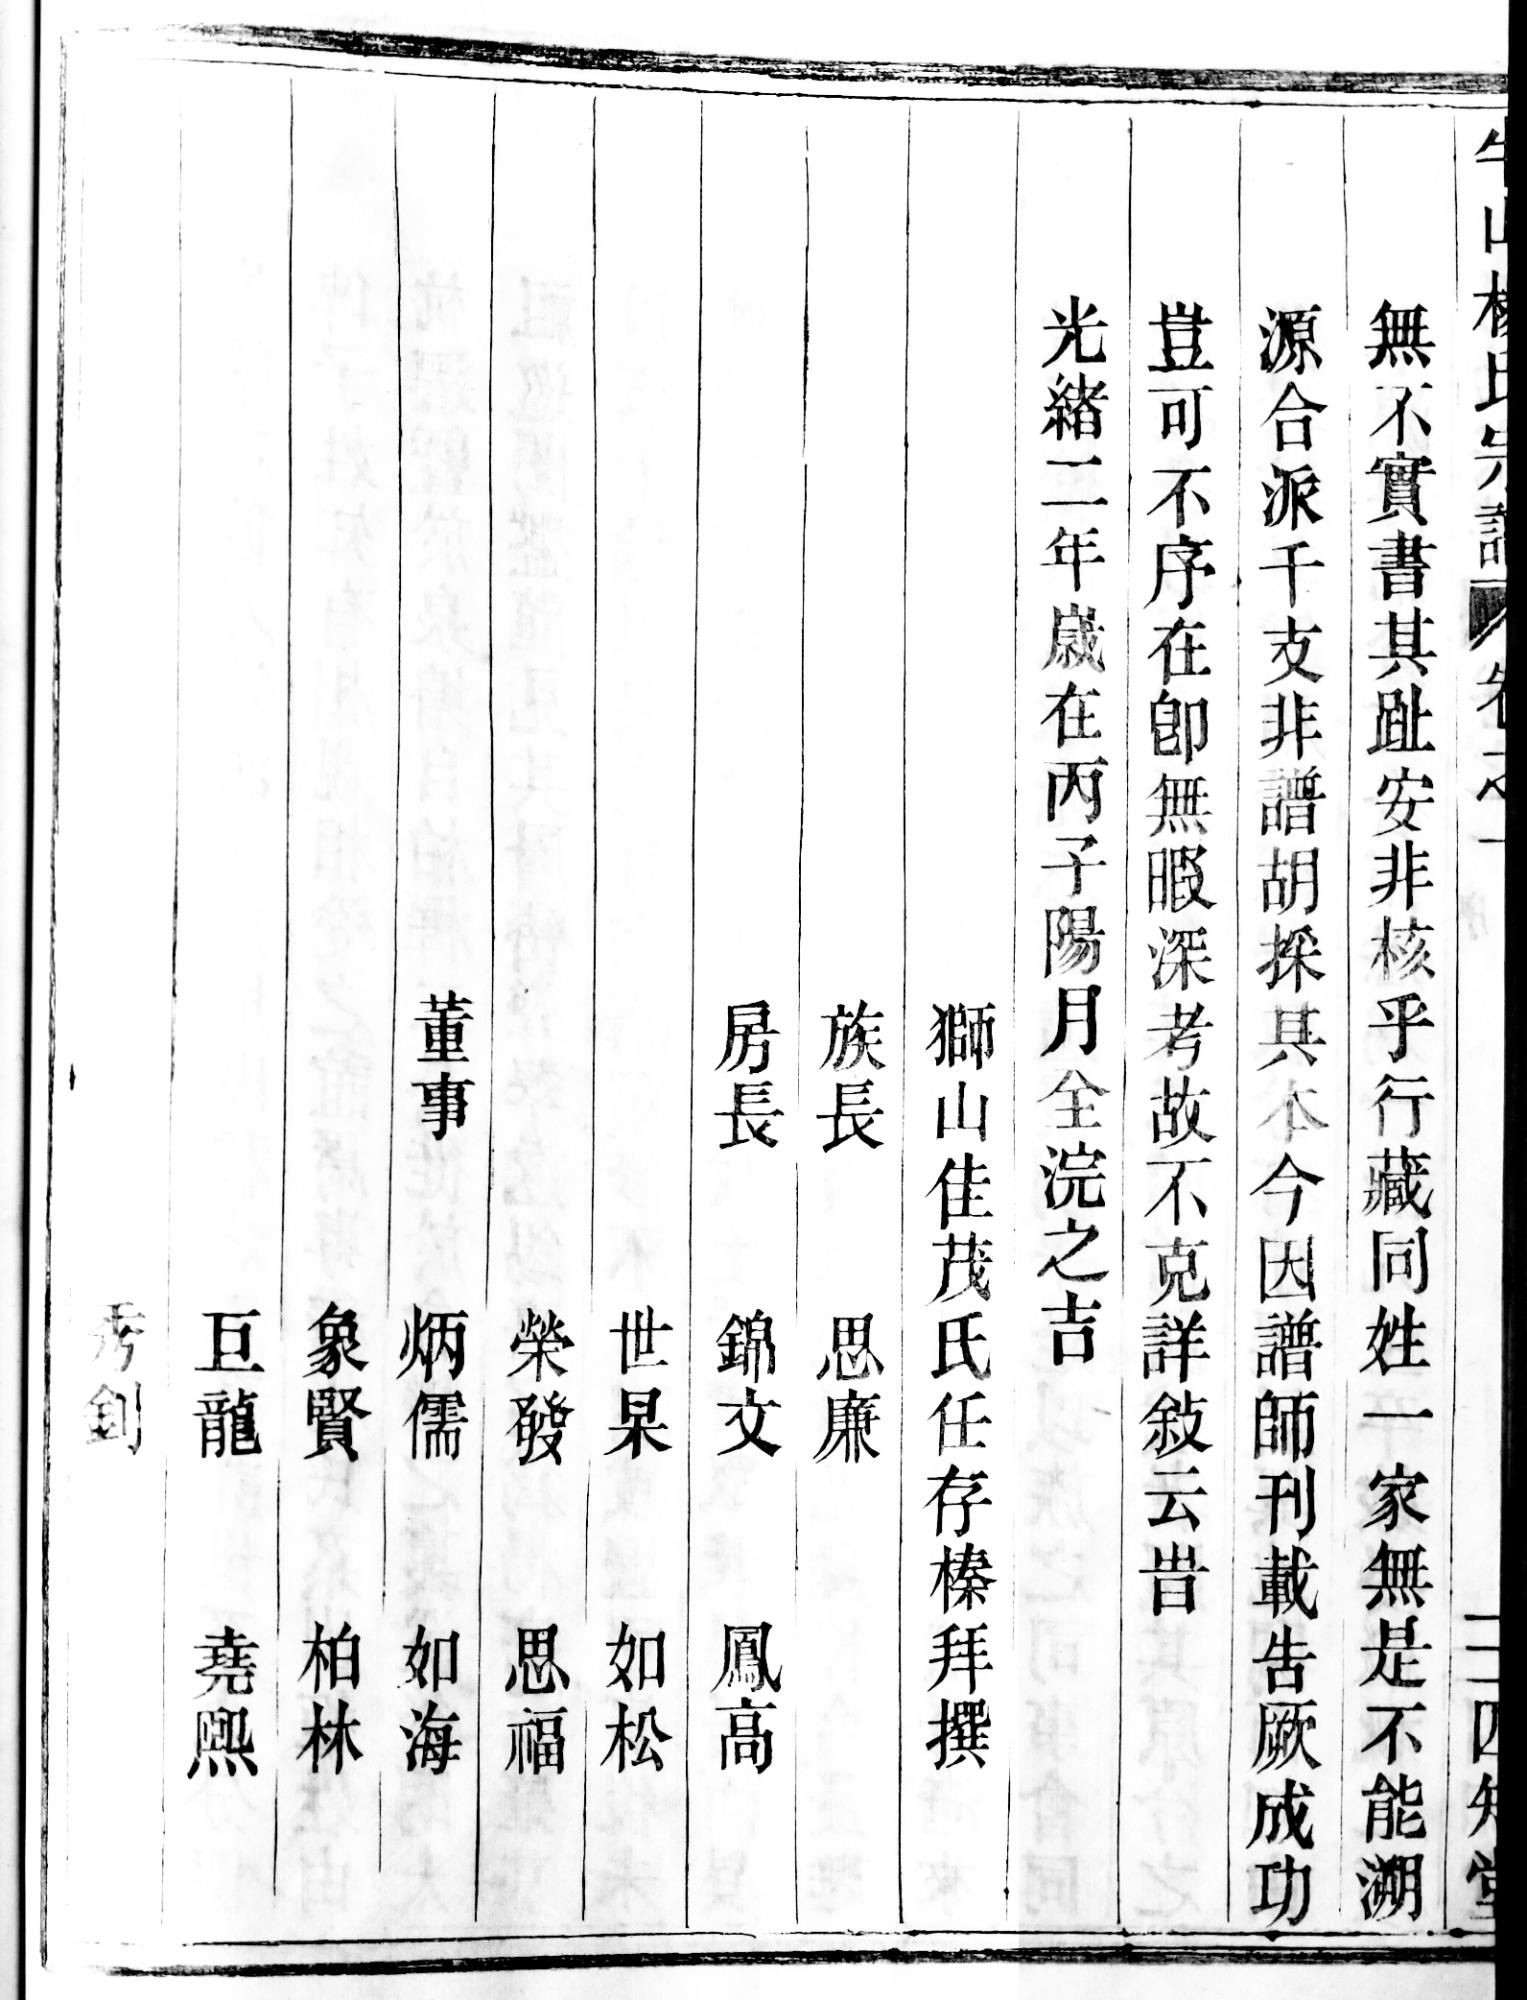 山楊氏宗譜 卷之一 二 四知堂
無不實書其趾安非核乎行藏同姓一家無是不能溯
源合派千支非譜胡採其本今因譜師刊載告厥成功
豈可不序在卽無暇深考故不克詳敍云旹
光緒二年歲在丙子陽月全浣之吉
獅山佳茂氏任存榛拜撰
族長 思廉
房長 錦文 鳳高
世杲 如松
榮發 思福
董事 炳儒 如海
象賢 柏林
巨龍 堯熙
秀釗